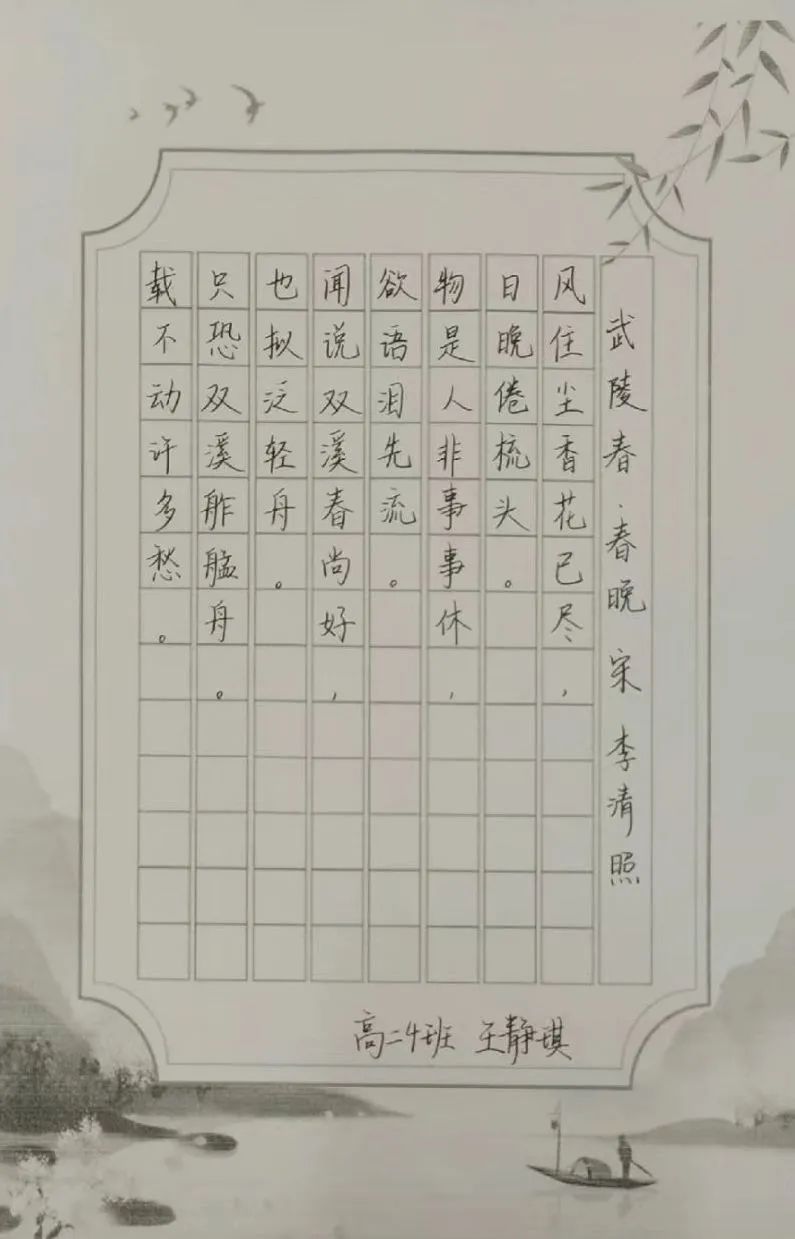 武陵春·春晚 宋 李清照
风住尘香花已尽，
日晚倦梳头。
物是人非事事休，
欲语泪先流。
闻说双溪春尚好，
也拟泛轻舟。
只恐双溪舴艋舟。
载不动许多愁。
高二4班 王静琪